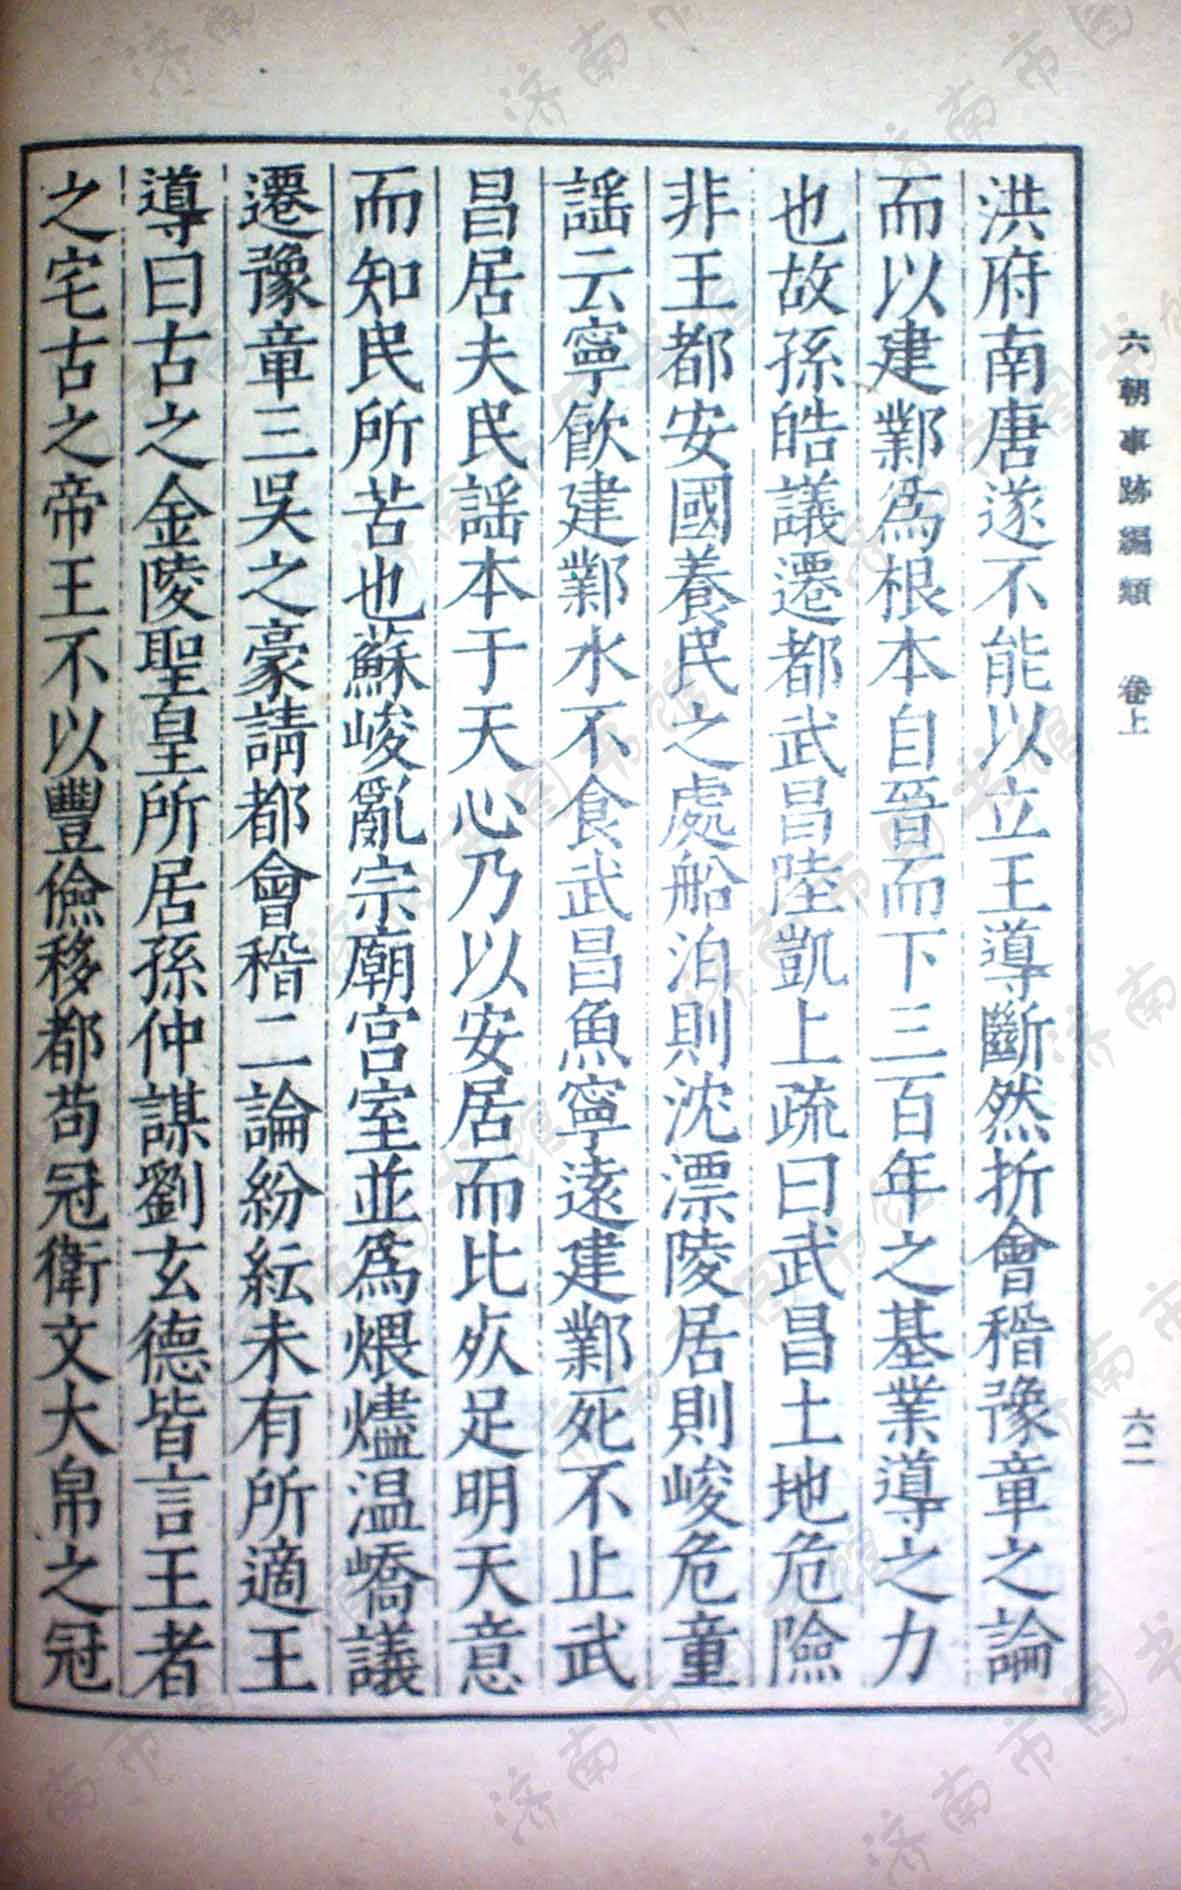 六朝事跡編類 卷上
六二
洪府南唐遂不能以立王導斷然折會稽豫章之論
而以建鄴爲根本自晉而下三百年之基業導之力
也故孫皓議遷都武昌陸凱上疏曰武昌土地危險
非王都安國養民之處船泊則沈漂陵居則峻危童
謡云寧飲建鄴水不食武昌魚寧遠建鄴死不止武
昌居夫民謡本于天心乃以安居而比死足明天意
而知民所苦也蘇峻亂宗廟宮室並爲煨燼温嶠議
遷豫章三吳之豪請都會稽二論紛紜未有所適王
導曰古之金陵聖皇所居孫仲謀劉玄德皆言王者
之宅古之帝王不以豐儉移都苟冠衛文大帛之冠